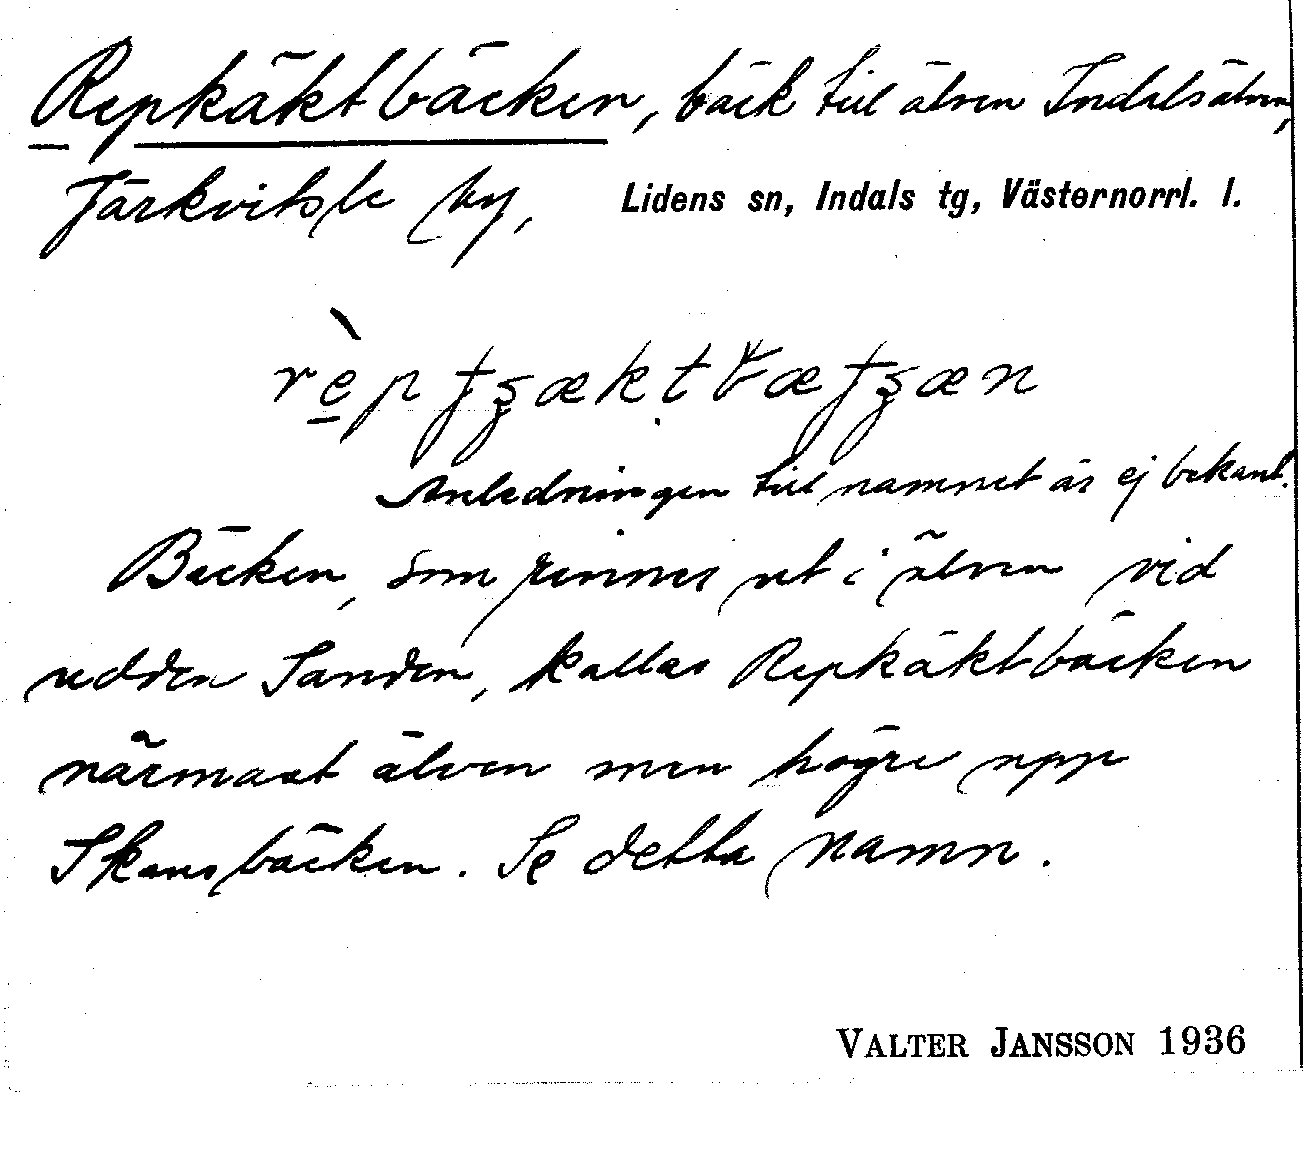 Repkäktbäcken, bäck till älven Indalsälven,
Järkvitsle by, Lidens sn, Indals tg, Västernorrl. l.
Anledningen till namnet är ej bekant.
Bäcken, som rinner ut i älven vid
udden Sanden, kallas Repkäktbäcken
närmast älven men högre upp
Skansbäcken. Se detta namn.
VALTER JANSSON 1936